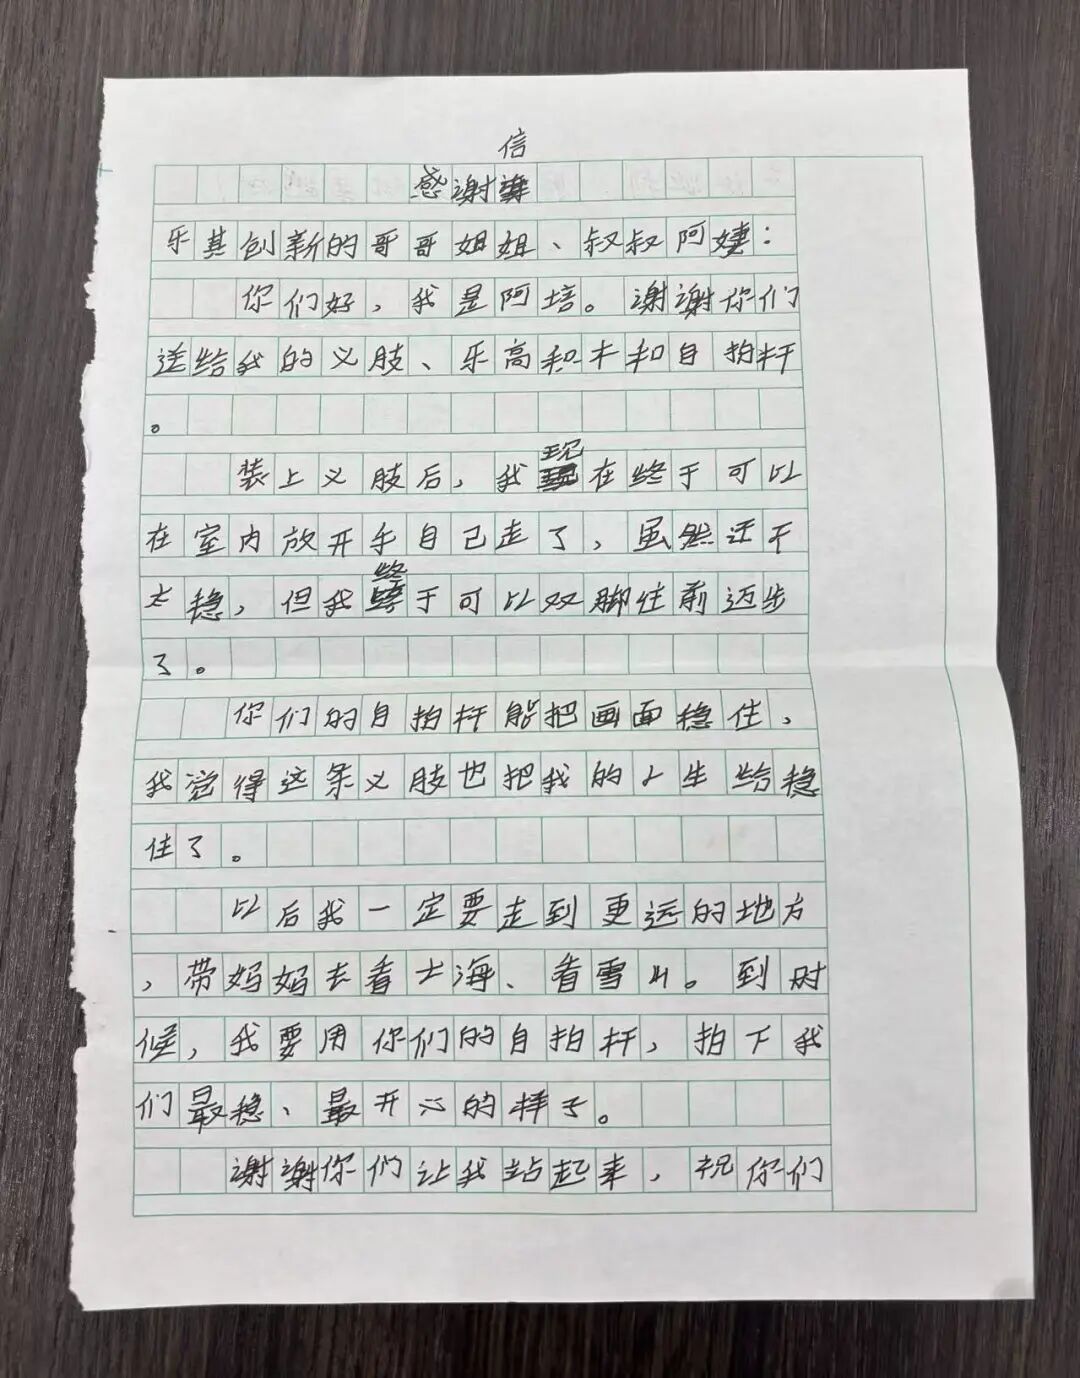 感谢信
乐其创新的哥哥姐姐、叔叔阿姨：
你们好，我是阿培。谢谢你们
送给我的义肢、乐高积木和自拍杆
。
装上义肢后，我现在终于可以
在室内放开手自己走了，虽然还不
太稳，但我终于可以双脚往前迈步
了。
你们的自拍杆能把画面稳住，
我觉得这条义肢也把我的人生给稳
住了。
以后我一定要走到更远的地方
，带妈妈去看大海、看雪山。到时
候，我要用你们的自拍杆，拍下我
们最稳、最开心的样子。
谢谢你们让我站起来，祝你们